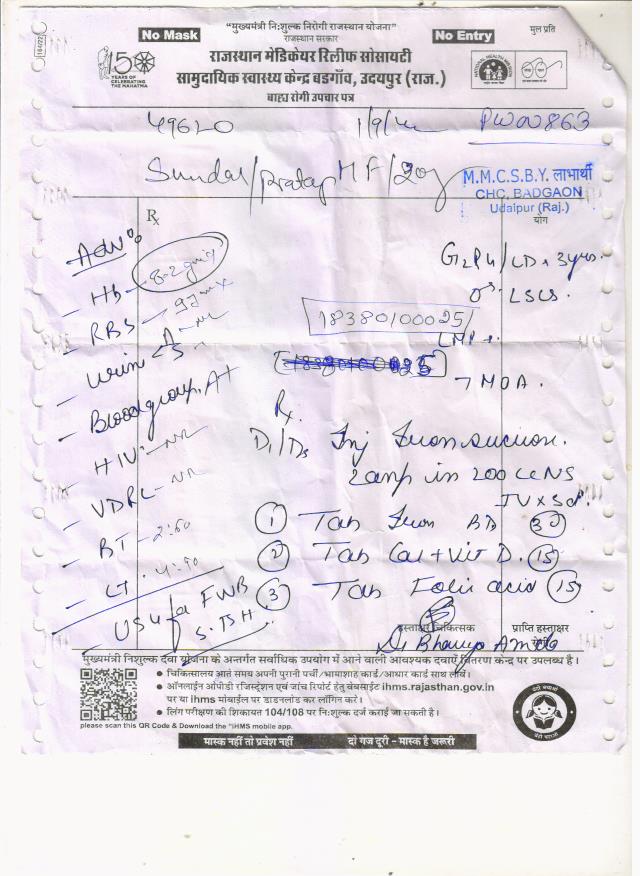 "मुख्यमंत्री निःशुल्क निरोगी राजस्थान योजना"
राजस्थान सरकार
मुल प्रति
No Mask
No Entry
राजस्थान मेडिकेयर रिलीफ सोसायटी
सामुदायिक स्वास्थ्य केन्द्र बडगाँव, उदयपुर (राज.)
बाह्य रोगी उपचार पत्र
150
YEARS OF
CELEBRATING
THE MAHATMA
49620
PW00863
Sundar/Pratap M F/20y
M.M.C.S.B.Y. लाभार्थी
CHC, BADGAON
Udaipur (Raj.)
योग
Rx
Hb - 8.2
RBS
Urine A
S
Blood group. A+
HIV - NR
VDRL - NR
BT - 2:50
CT - 4:50
USG fa FWB
S. TSH
LD x 3yrs.
LSCS.
18380100025
LMP
7 MOA.
Rx
Inj Iron sucrose.
2amp in 200 cc NS
① Tab Iron BD 30
② Tab Cal + Vit D. 15
③ Tab Folic acid 15
हस्ताक्षर चिकित्सक
प्राप्ति हस्ताक्षर
मुख्यमंत्री निशुल्क दवा योजना के अन्तर्गत सर्वाधिक उपयोग में आने वाली आवश्यक दवाऐं वितरण केन्द्र पर उपलब्ध है।
• चिकित्सालय आते समय अपनी पुरानी पर्ची/भामाशाह कार्ड/आधार कार्ड साथ लावें।
• ऑनलाईन ओपीडी रजिस्ट्रेशन एवं जांच रिपोर्ट हेतु वेबसाईट ihms.rajasthan.gov.in
पर या ihms मोबाईल पर डाउनलोड कर लॉगिन करें।
• लिंग परीक्षण की शिकायत 104/108 पर निःशुल्क दर्ज कराई जा सकती है।
please scan this QR Code & Download the "IHMS mobile app.
मास्क नहीं तो प्रवेश नहीं
दो गज दूरी - मास्क है जरूरी